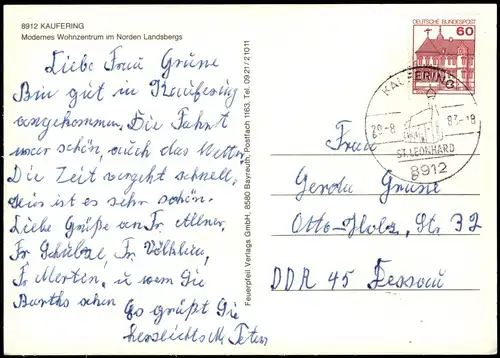 8912 KAUFERING
Modernes Wohnzentrum im Norden Landsbergs
Liebe Frau Grüne
Bin gut in Kaufering
angekommen. Die Fahrt
war schön, auch das Wetter.
Die Zeit vergeht schnell,
ist es sehr schön.
Liebe Grüße an Fr. Allner.
Fr. Schülze, Fr.
Fr. Merten, u wem Sie
sehen Es grüßt Sie
herzlichst M. Peters
Feuerpfeil Verlags GmbH, 8580 Bayreuth, Postfach 1163, Tel. 09 21 / 2 10 11
DEUTSCHE BUNDESPOST
60
KAUFERING
29-8 83-18
ST. LEONHARD
8912
Frau
Gerda Grüne
Otto-Holz, Str 32
DDR 45 Dessau